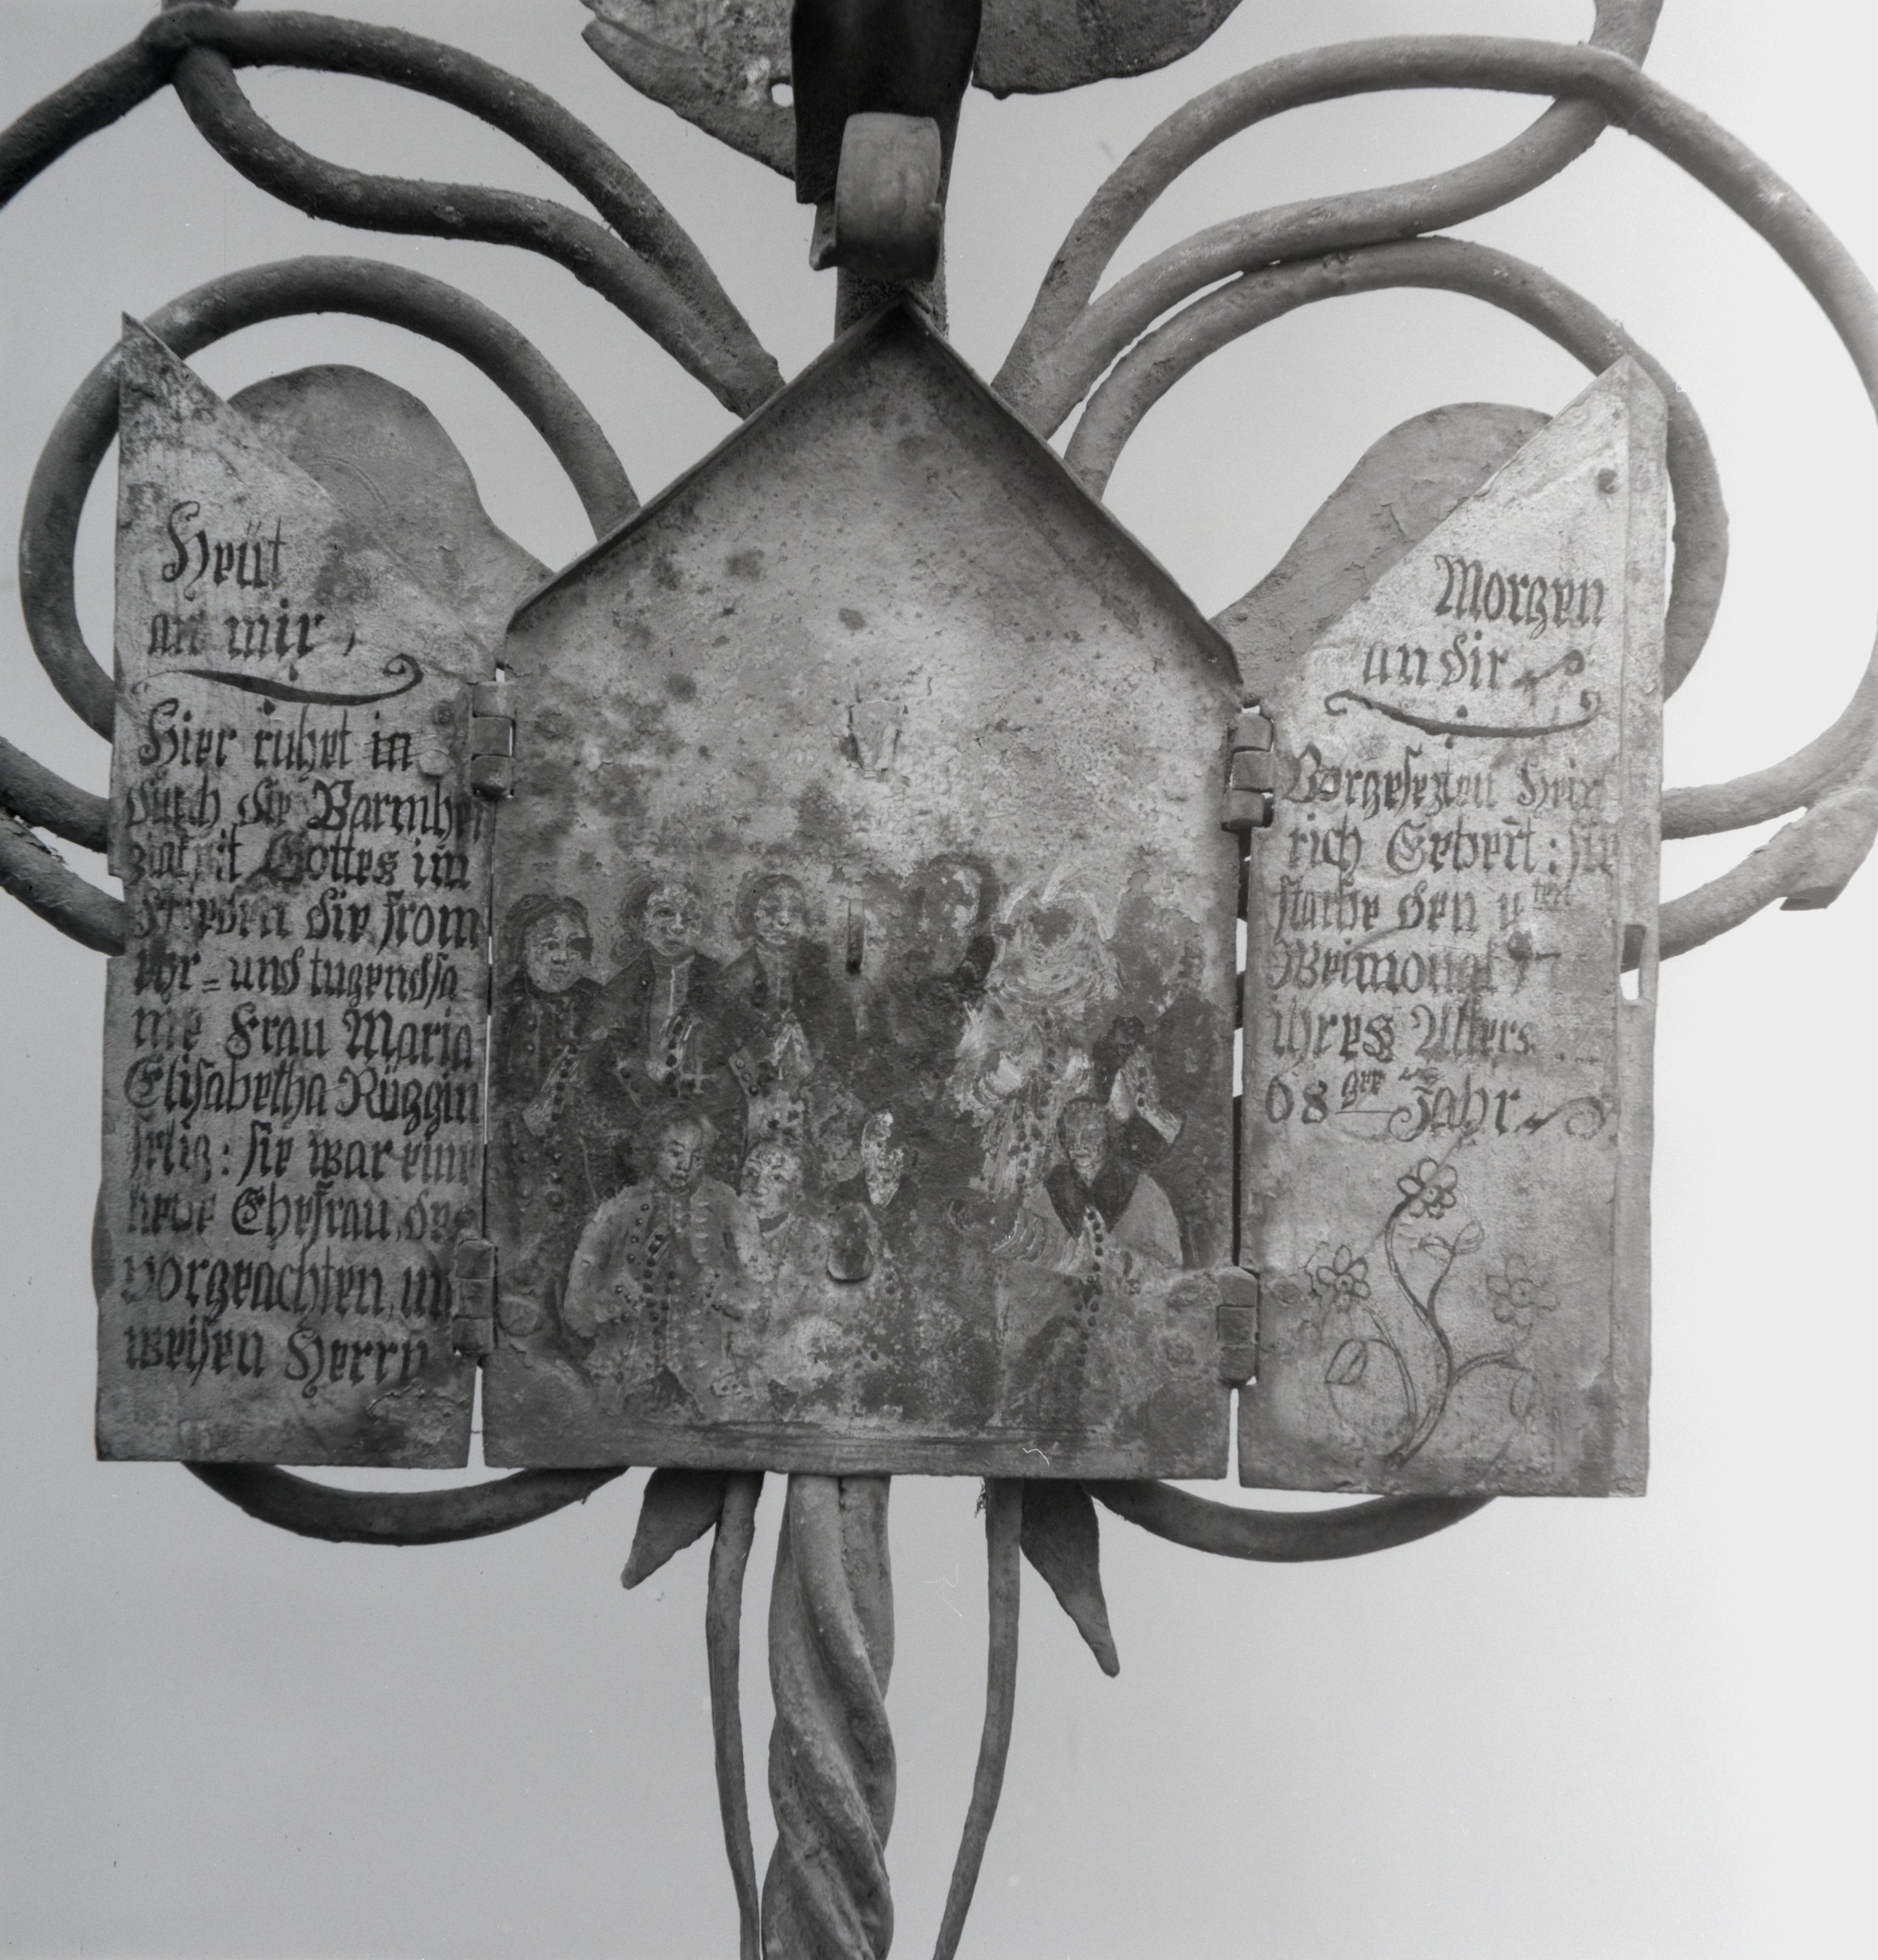 Heüt
an mir,
Hier ruhet in
durch die Barmher
zigkeit Gottes im
Frieden die from
ehr= und tugendsa
me Frau Maria
Elisabetha Rüggin
selig: sie war eine
Ehefrau, des
vorgeachten, un
weisen Herrn
Morgen
an dir
Vorgesezten Hein
rich Erbert: sie
starbe den
Weimonat
ihres Alters
68 ger Jahr